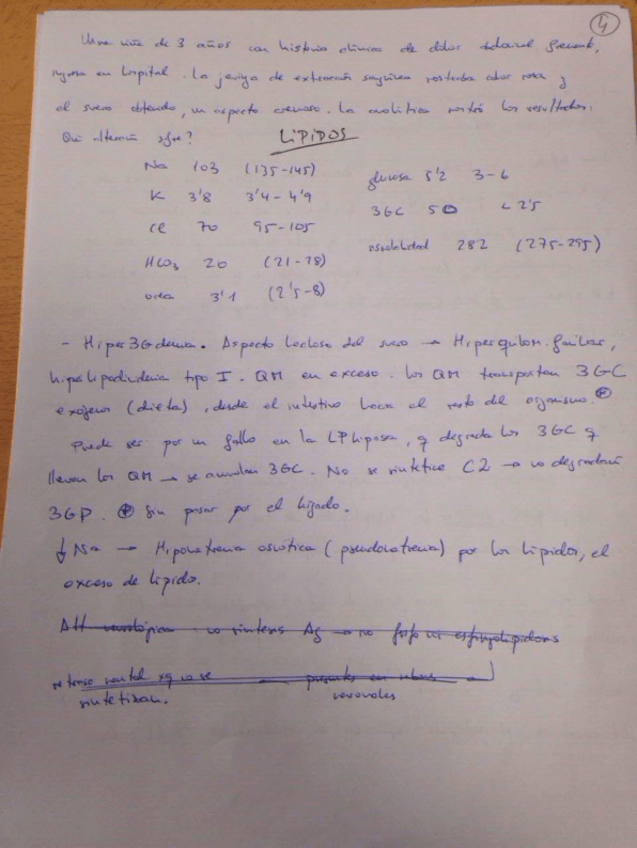 4
Una niña de 3 años con historia clínica de dolor abdominal frecuente,
ingresa en hospital. La jeringa de extracción sanguínea mostraba color rosa y
el suero obtenido, un aspecto cremoso. La analítica mostró los resultados:
Qué alteración sufre? LÍPIDOS
Na 103 (135-145) glucosa 5'2 3-6
K 3'8 3'4-4'9 3GC 50 < 2'5
Cl 70 95-105
HCO3 20 (21-28) osmolalidad 282 (275-295)
urea 3'1 (2'5-8)
- Hiper3Gdemia. Aspecto lechoso del suero → Hiperquilom. familiar,
hiperlipidemia tipo I. QM en exceso. Los QM transportan 3GC
exógenos (dieta), desde el intestino hacia el resto del organismo. ⊕
Puede ser por un fallo en la LPlipasa, q degrada los 3GC q
llevan los QM → se acumulan 3GC. No se sintetiza C2 → no degradación
3GP. ⊕ Sin pasar por el hígado.
↓ Na → Hiponatremia osmótica (pseudonatremia) por los lípidos, el
exceso de lípido.
Alt neurológica no síntesis Ag → no fosfo ni esfingolípidos
retraso mental xq no se presentes en
sintetizan. neuronales